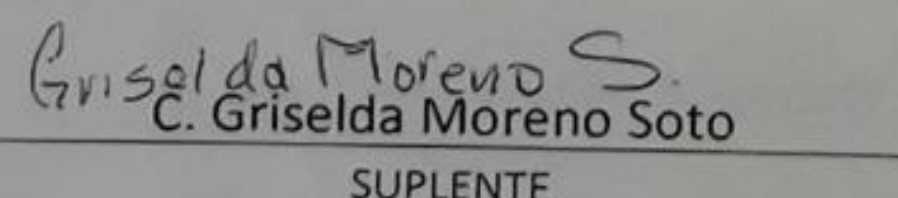 Griselda Moreno S.
C. Griselda Moreno Soto
SUPLENTE